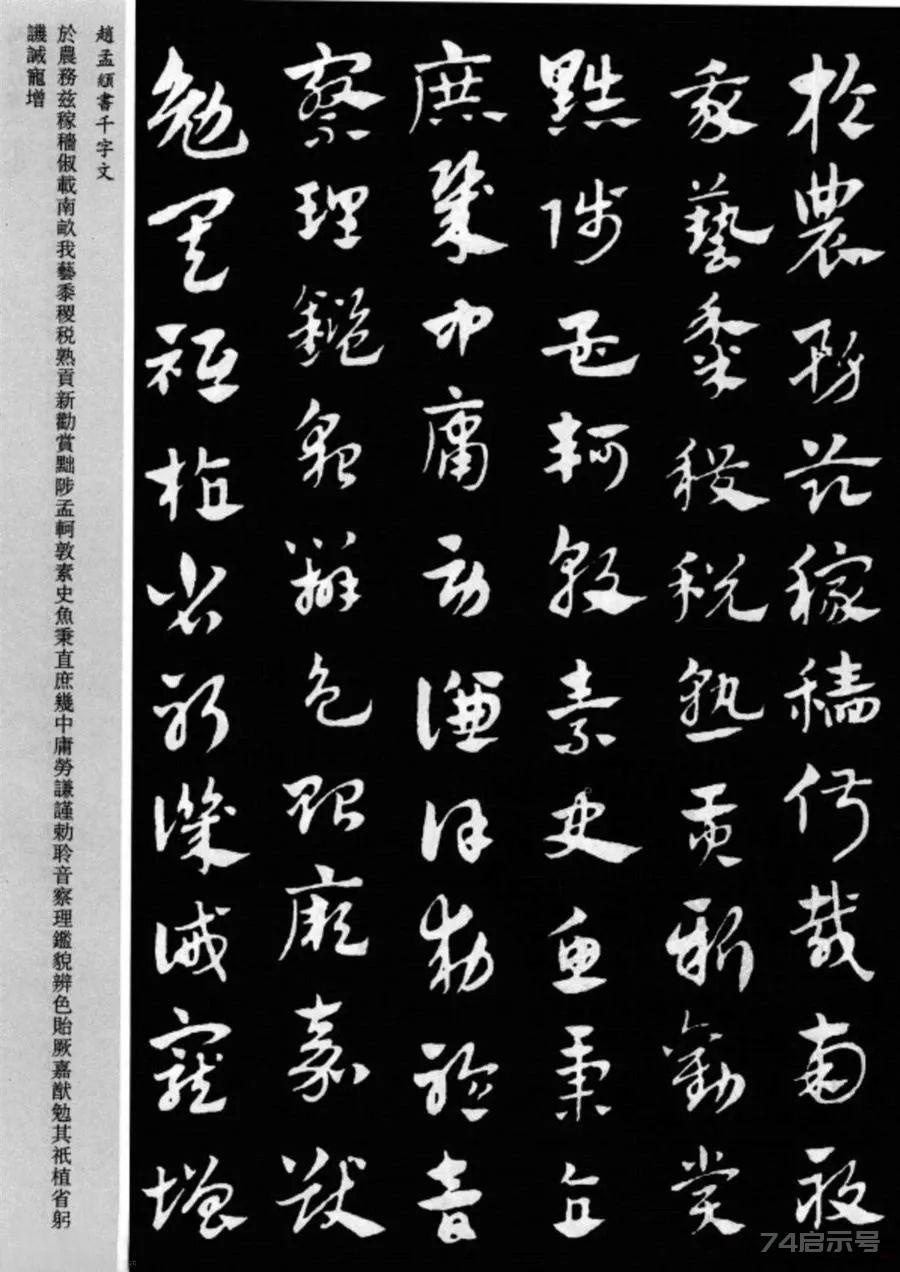 於農務兹稼穡俶載南畝
我藝黍稷税熟貢新勸賞
黜陟孟軻敦素史魚秉直
庶幾中庸勞謙謹勅聆音
察理鑑貌辨色貽厥嘉猷
勉其祗植省躬譏誡寵增
趙孟頫書千字文
於農務兹稼穡俶載南畝我藝黍稷税熟貢新勸賞黜陟孟軻敦素史魚秉直庶幾中庸勞謙謹勅聆音察理鑑貌辨色貽厥嘉猷勉其祗植省躬
譏誡寵增
74启示号